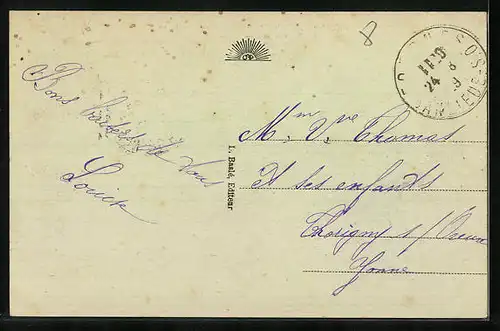 8
Bons baisers de vous
Louise
L. Baslé, Editeur
Mme Vve Thomas
Et ses enfants
Thorigny s/ Oreuse
Yonne